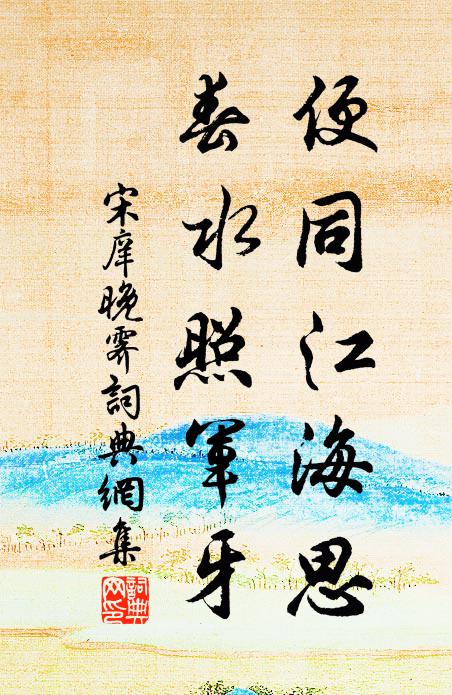 便同江海思
春水照軍牙
宋庠晚霽詞典網集
詞典網印